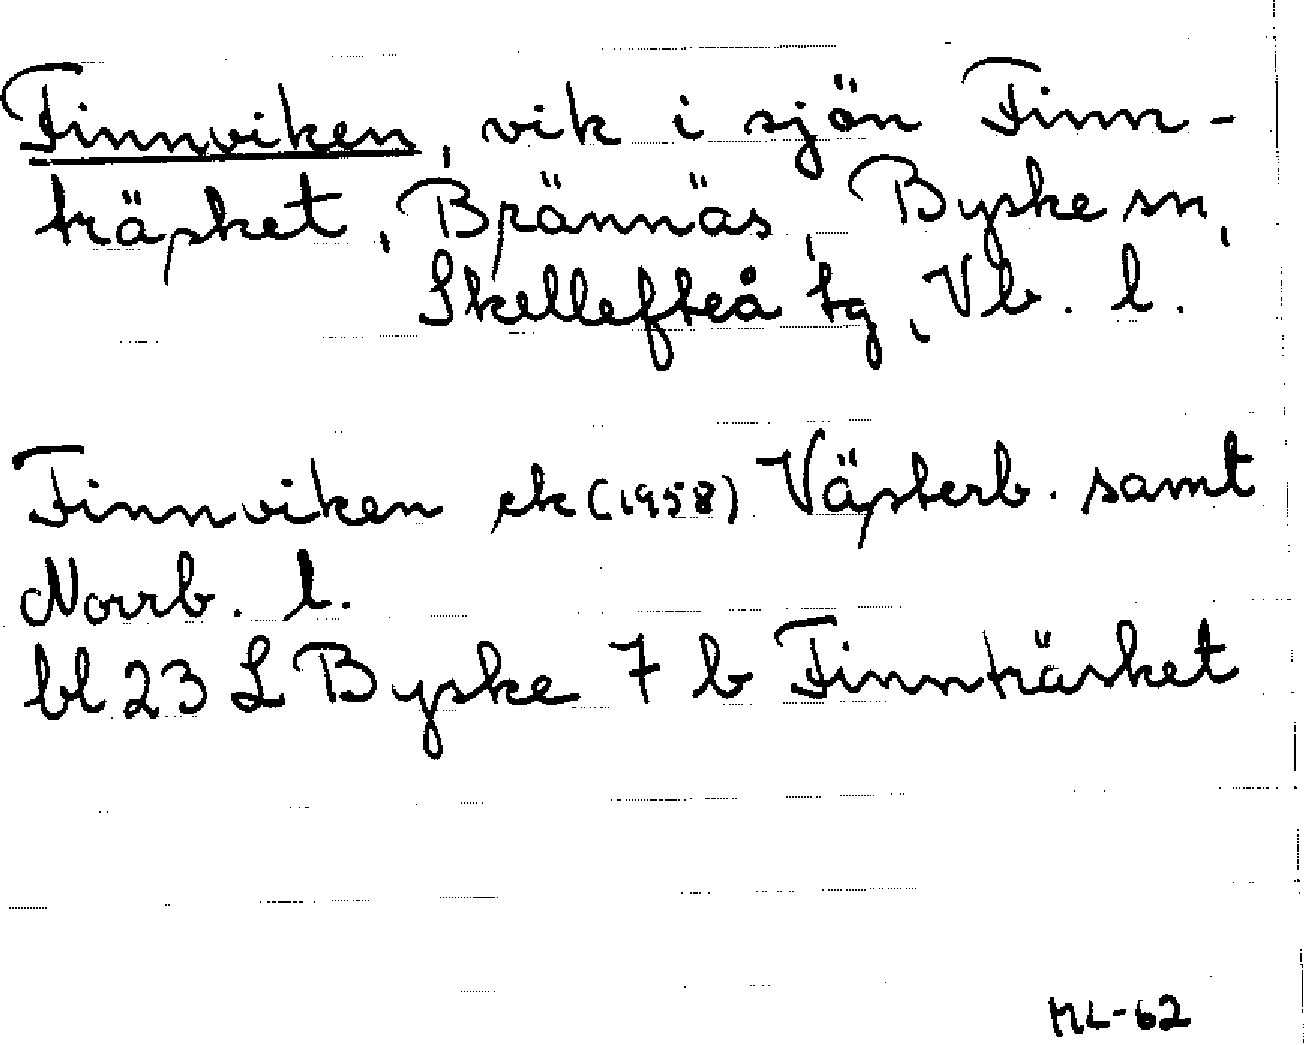 Finnviken, vik i sjön Finn-
träsket, Brännäs, Byske sn,
Skellefteå tg, Vb. l.
Finnviken ek (1958) Västerb. samt
Norrb. l.
bl 23 L Byske 7 b Finnträsket
ML-62